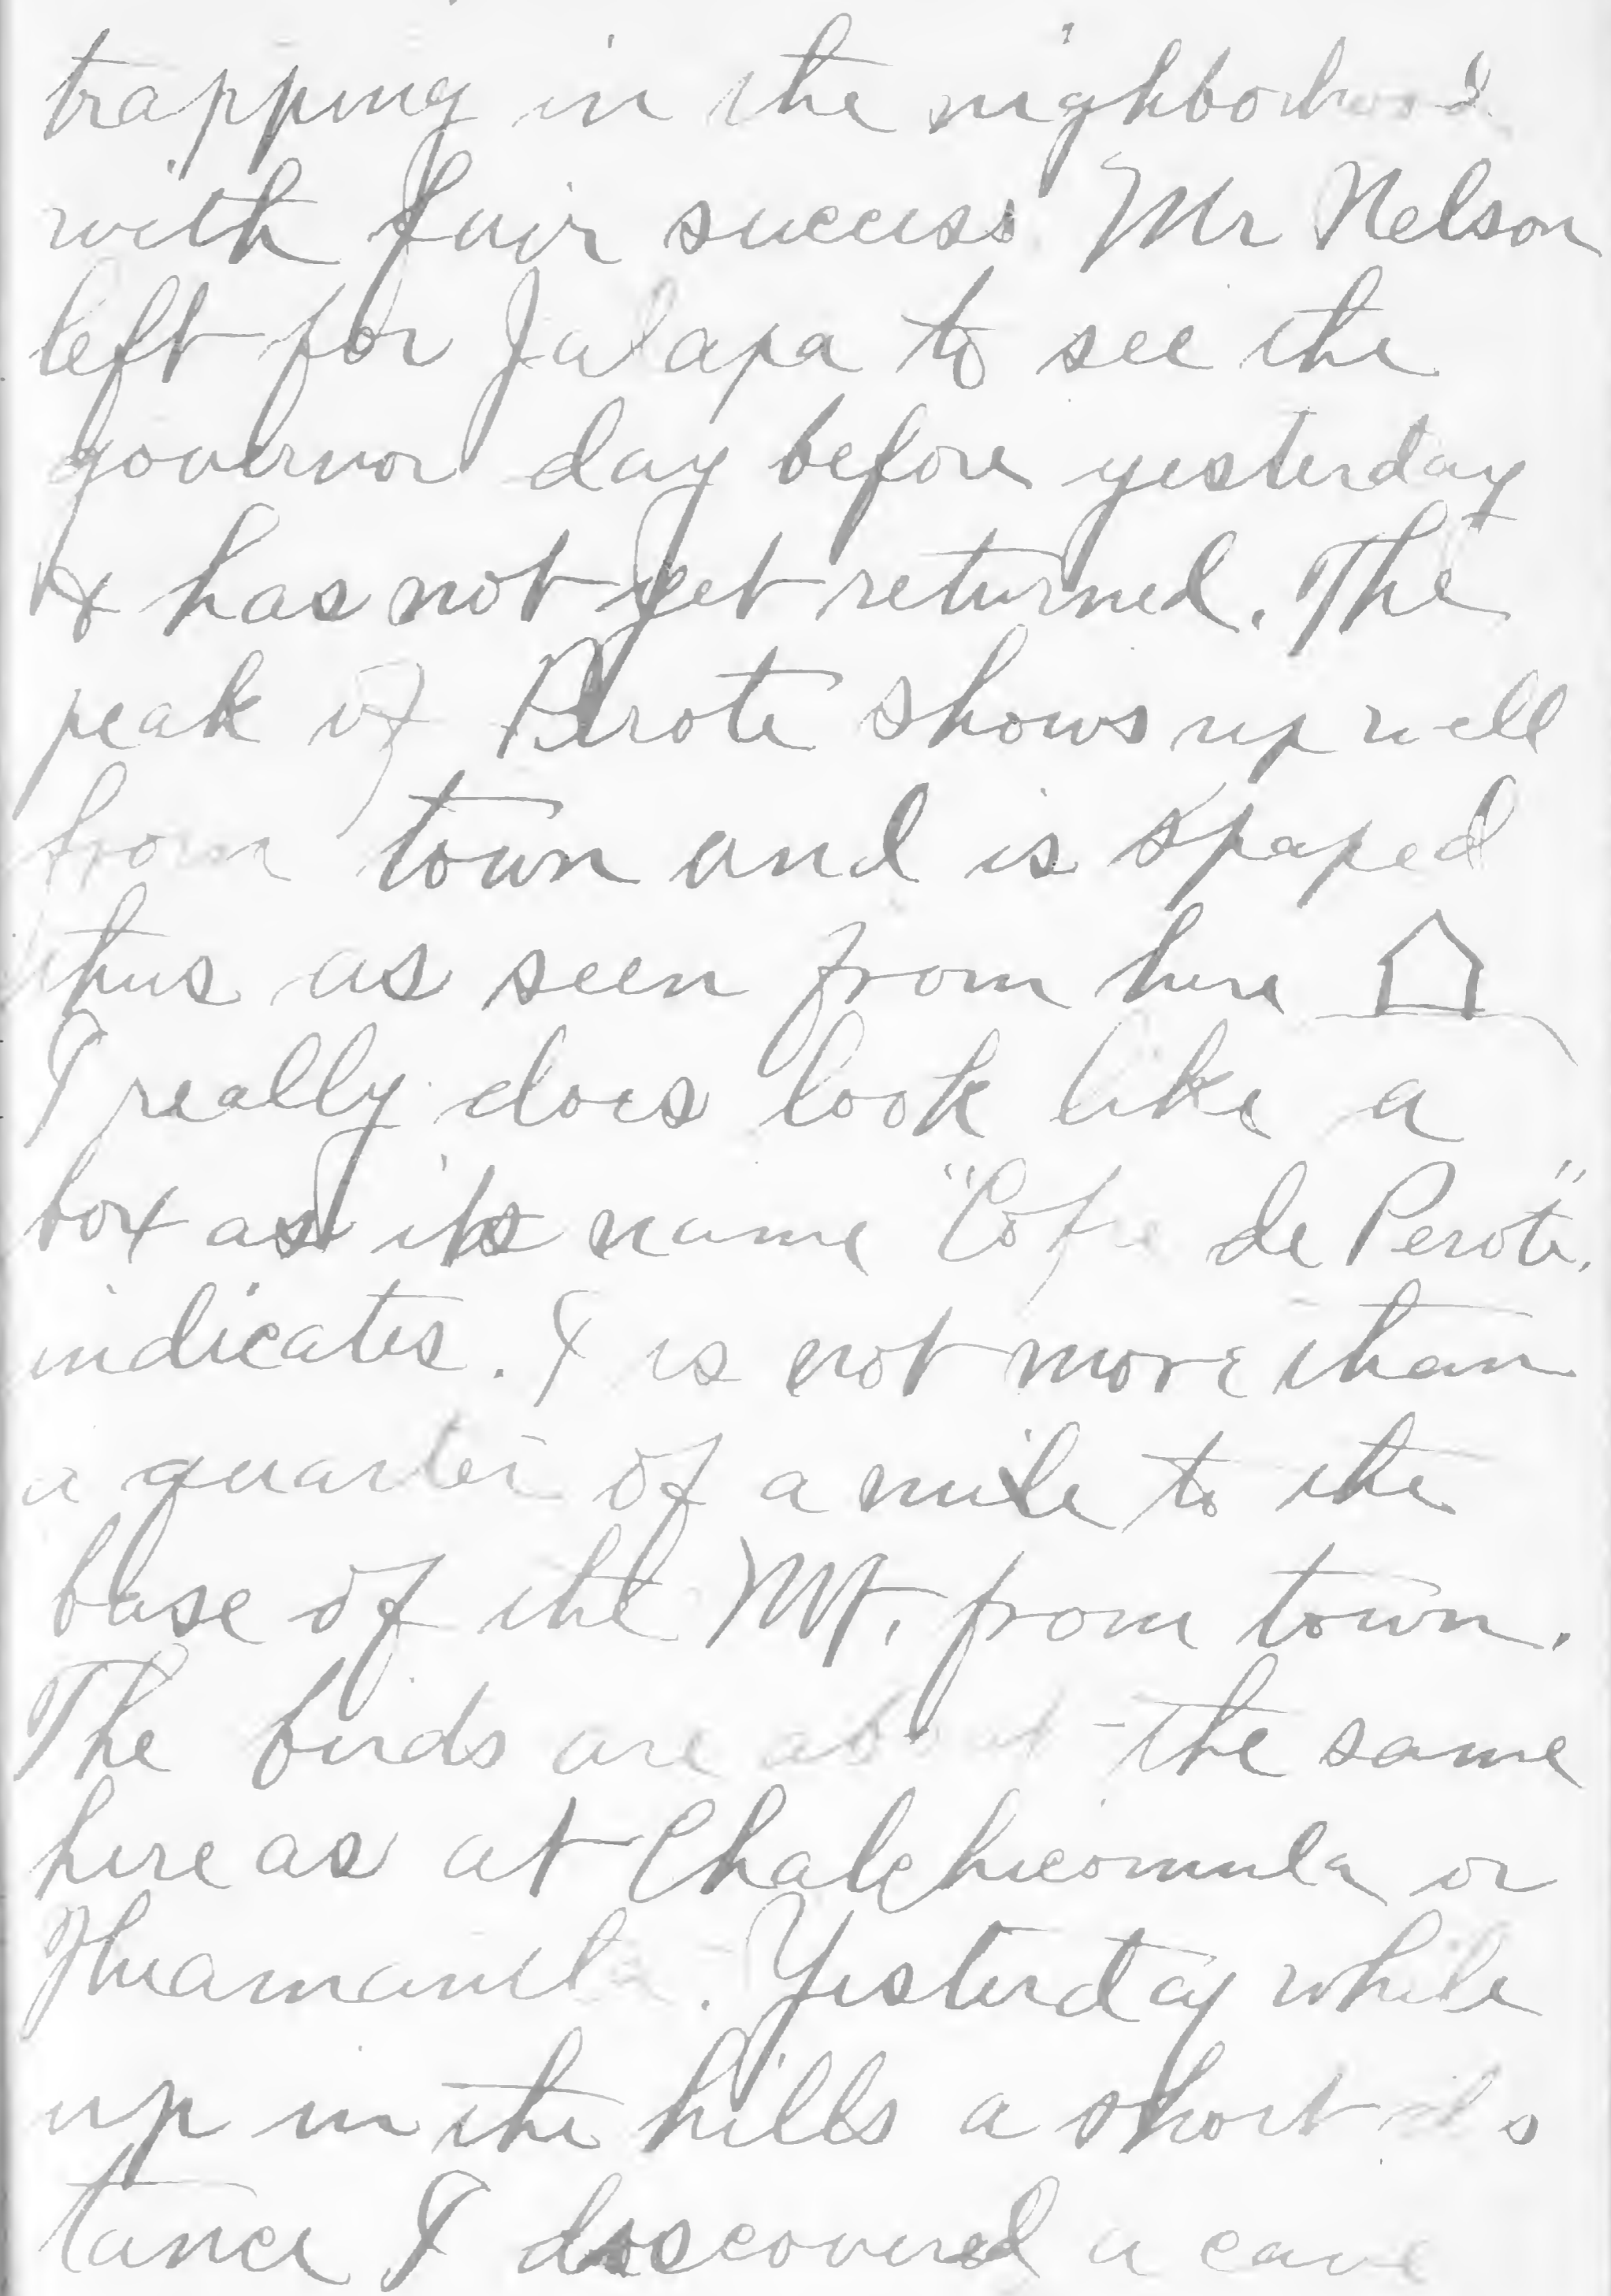 trapping in the nighborhood
with fair success. Mr Nelson
left for Jalapa to see the
governor day before yesterday
& has not yet returned. The
peak of Perote shows up well
from town and is spaped
thus as seen from here
I really does look like a
box as its name "Cofre de Perote".
indicates. I is not more than
a quarter of a mile to the
base of the Mt. from town.
The birds are about the same
here as at Chalchicomula or
Huamantla. Yesterday while
up in the hills a short dis
tance I discovered a cave